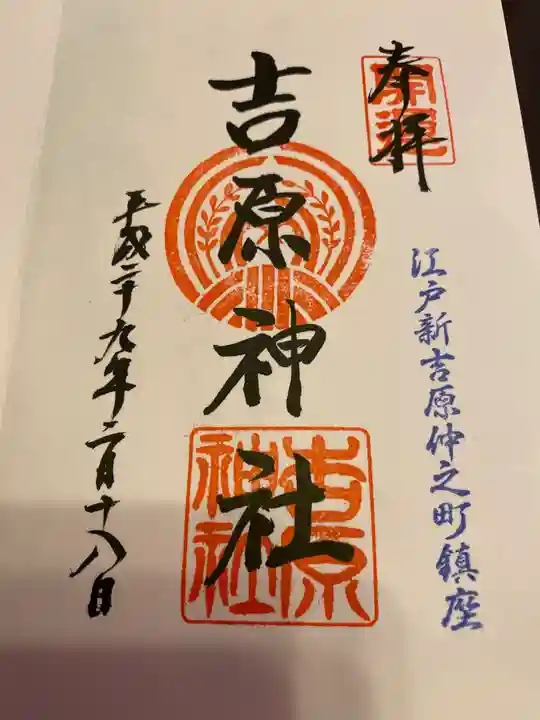 奉拝
開運
江戸新吉原仲之町鎮座
吉原神社
吉原神社
平成二十九年二月十八日